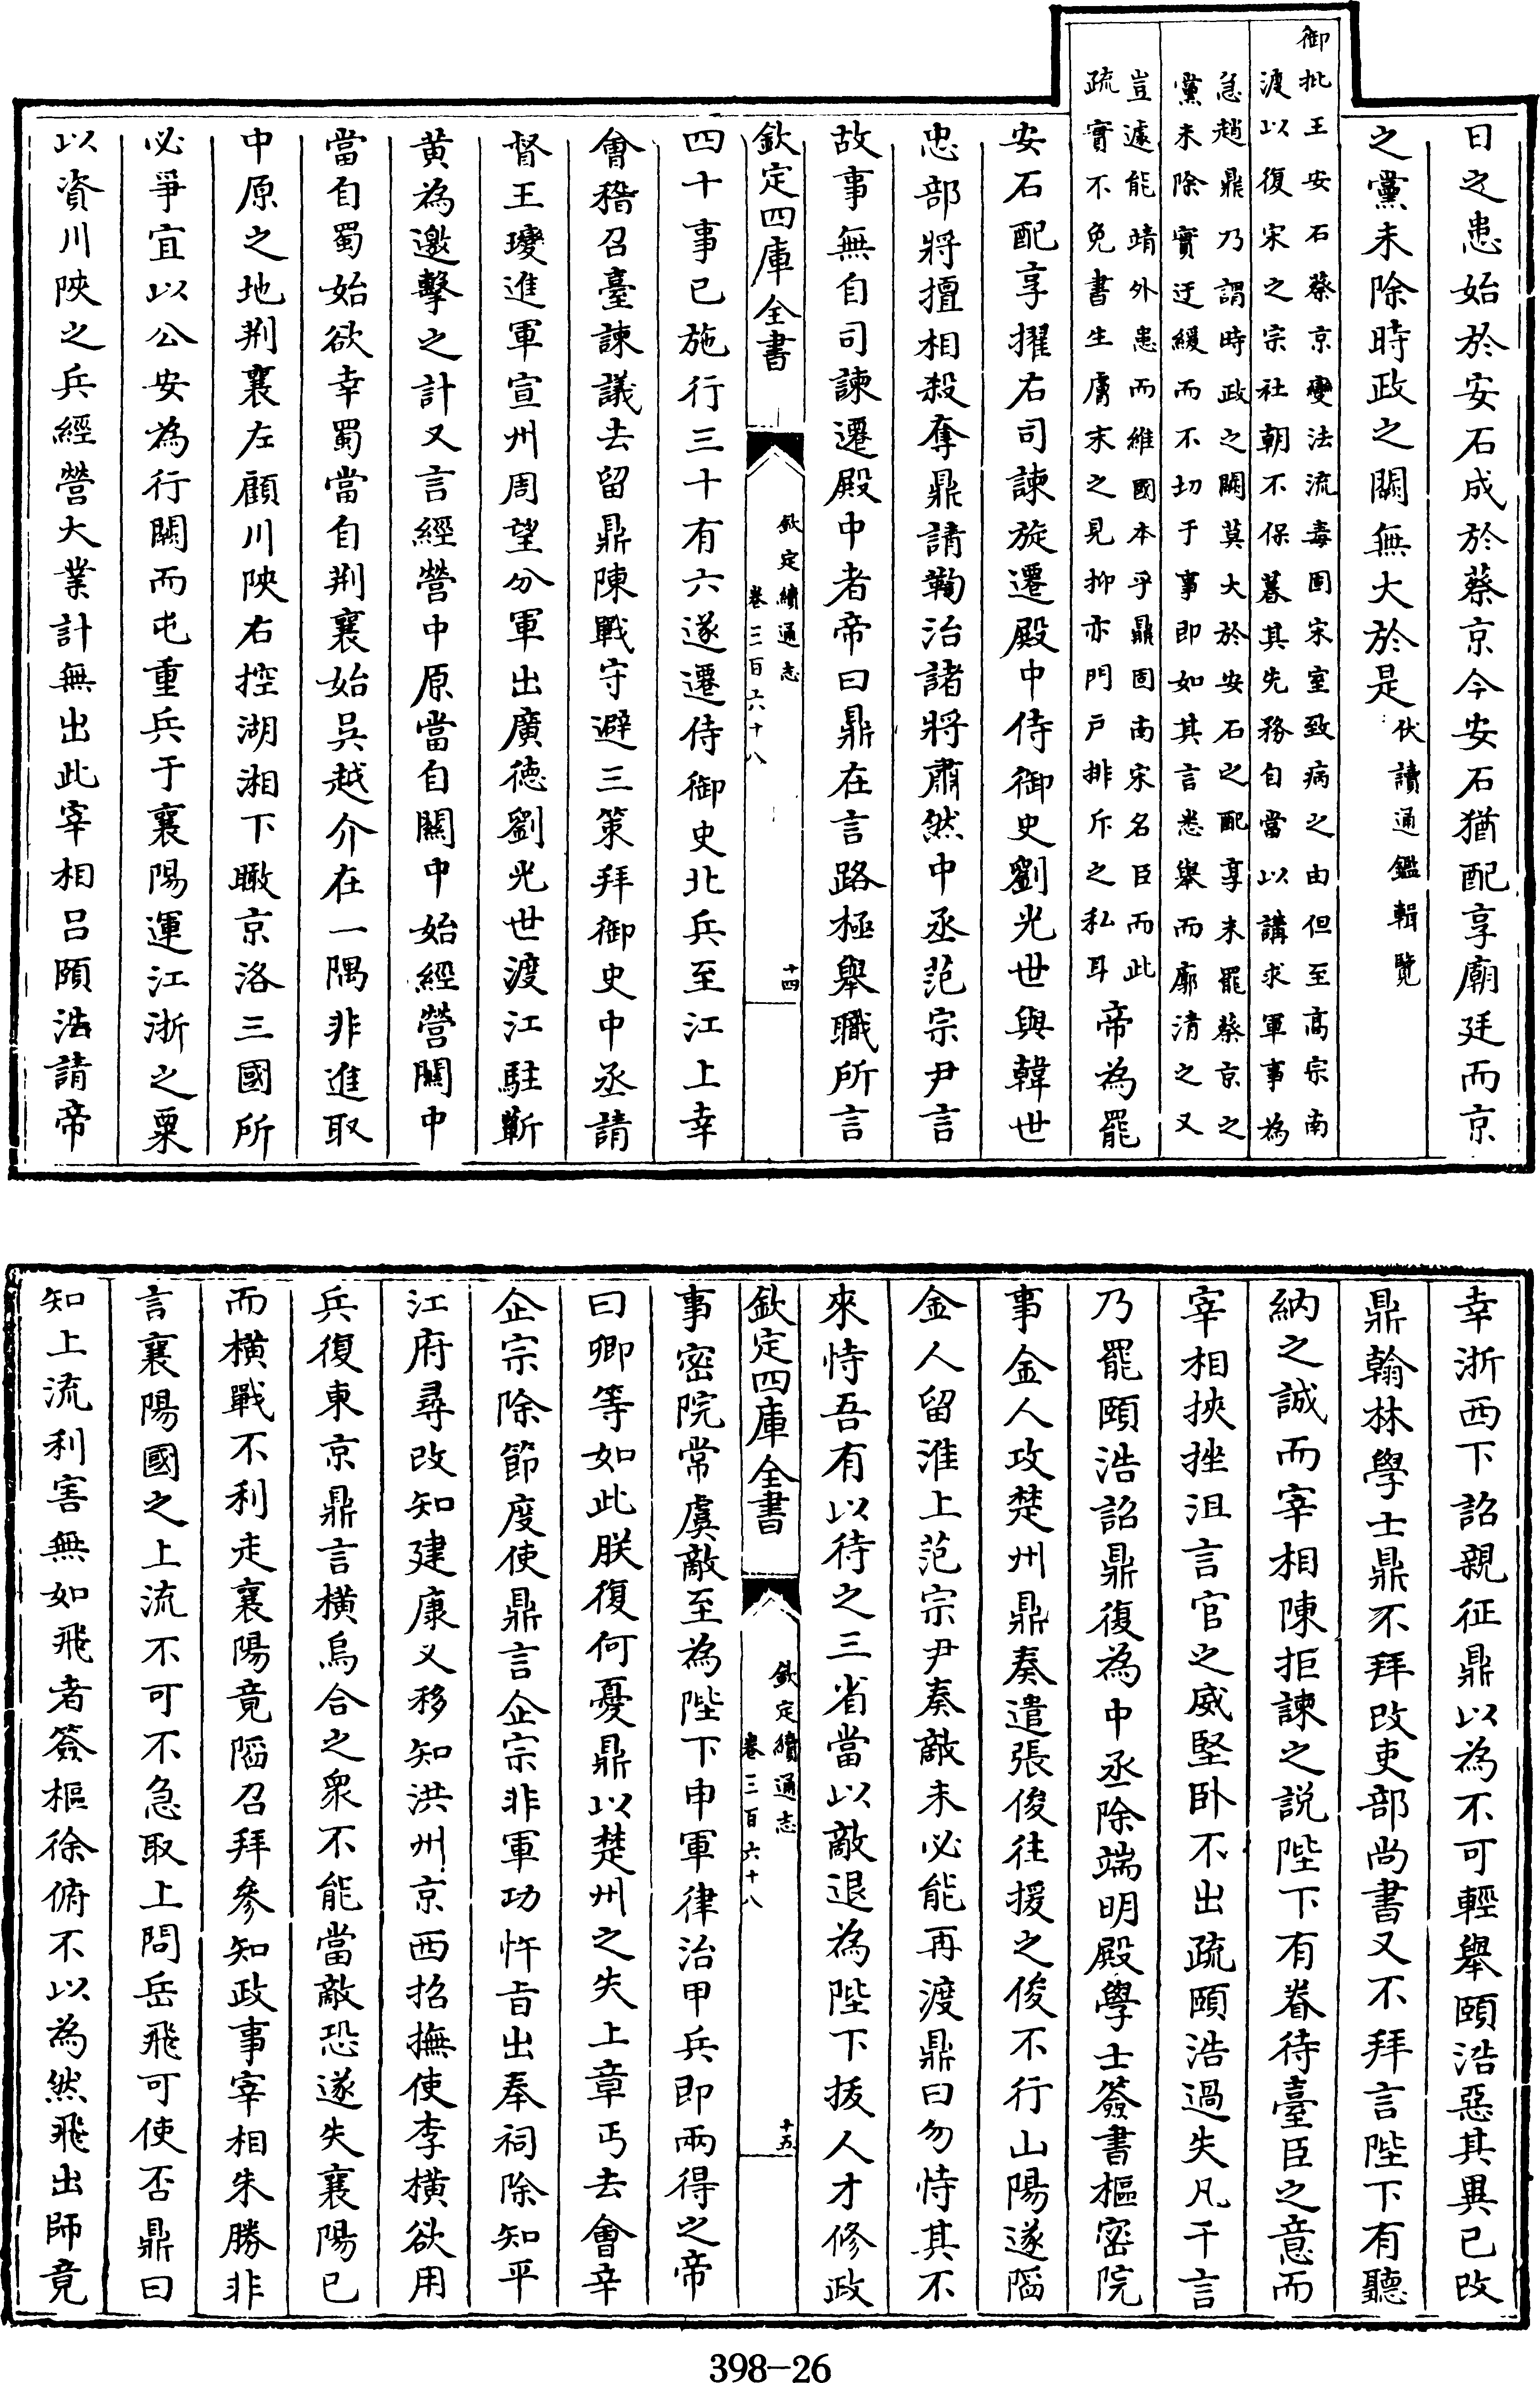 日之患始於安石成於蔡京今安石猶配享廟廷而京
之黨未除時政之闕無大於是伏讀通鑑輯覽
御批王安石蔡京變法流毒固宋室致病之由但至高宗南
渡以復宋之宗社朝不保暮其先務自當以講求軍事為
急趙鼎乃謂時政之闕莫大於安石之配享未罷蔡京之
黨未除實迂緩而不切于事即如其言悉舉而廓清之又
豈遽能靖外患而維國本乎鼎固南宋名臣而此
疏實不免書生膚末之見抑亦門戶排斥之私耳
帝為罷
安石配享擢右司諫旋遷殿中侍御史劉光世與韓世
忠部將擅相殺奪鼎請鞫治諸將肅然中丞范宗尹言
故事無自司諫遷殿中者帝曰鼎在言路極舉職所言
欽定四庫全書
欽定續通志
卷三百六十八
十四
四十事已施行三十有六遂遷侍御史北兵至江上幸
會稽召臺諫議去留鼎陳戰守避三策拜御史中丞請
督王𤫉進軍宣州周望分軍出廣徳劉光世渡江駐蘄
黃為邀擊之計又言經營中原當自關中始經營關中
當自蜀始欲幸蜀當自荆襄始吳越介在一隅非進取
中原之地荆襄左顧川陜右控湖湘下瞰京洛三國所
必爭宜以公安為行闕而屯重兵于襄陽運江浙之粟
以資川陜之兵經營大業計無出此宰相呂頤浩請帝
幸浙西下詔親征鼎以為不可輕舉頤浩惡其異己改
鼎翰林學士鼎不拜改吏部尚書又不拜言陛下有聽
納之誠而宰相陳拒諫之説陛下有眷待臺臣之意而
宰相挾挫沮言官之威堅卧不出疏頤浩過失凡千言
乃罷頤浩詔鼎復為中丞除端明殿學士簽書樞密院
事金人攻楚州鼎奏遣張俊往援之俊不行山陽遂陷
金人留淮上范宗尹奏敵未必能再渡鼎曰勿恃其不
來恃吾有以待之三省當以敵退為陛下拔人才修政
欽定四庫全書
欽定續通志
卷三百六十八
十五
事密院常虞敵至為陛下申軍律治甲兵即兩得之帝
曰卿等如此朕復何憂鼎以楚州之失上章丐去會辛
企宗除節度使鼎言企宗非軍功忤旨出奉祠除知平
江府尋改知建康又移知洪州京西招撫使李橫欲用
兵復東京鼎言橫烏合之衆不能當敵恐遂失襄陽已
而橫戰不利走襄陽竟陷召拜參知政事宰相朱勝非
言襄陽國之上流不可不急取上問岳飛可使否鼎曰
知上流利害無如飛者簽樞徐俯不以為然飛出師竟
398-26